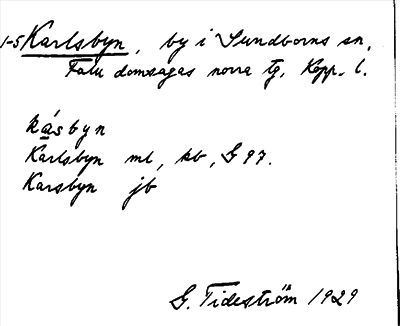 1-5 Karlsbyn, by i Sundborns sn,
Falu domsagas norra tg, Kopp. l.
kásbyn
Karlsbyn ml, kb, G 97.
Karsbyn jb
G. Tideström 1929